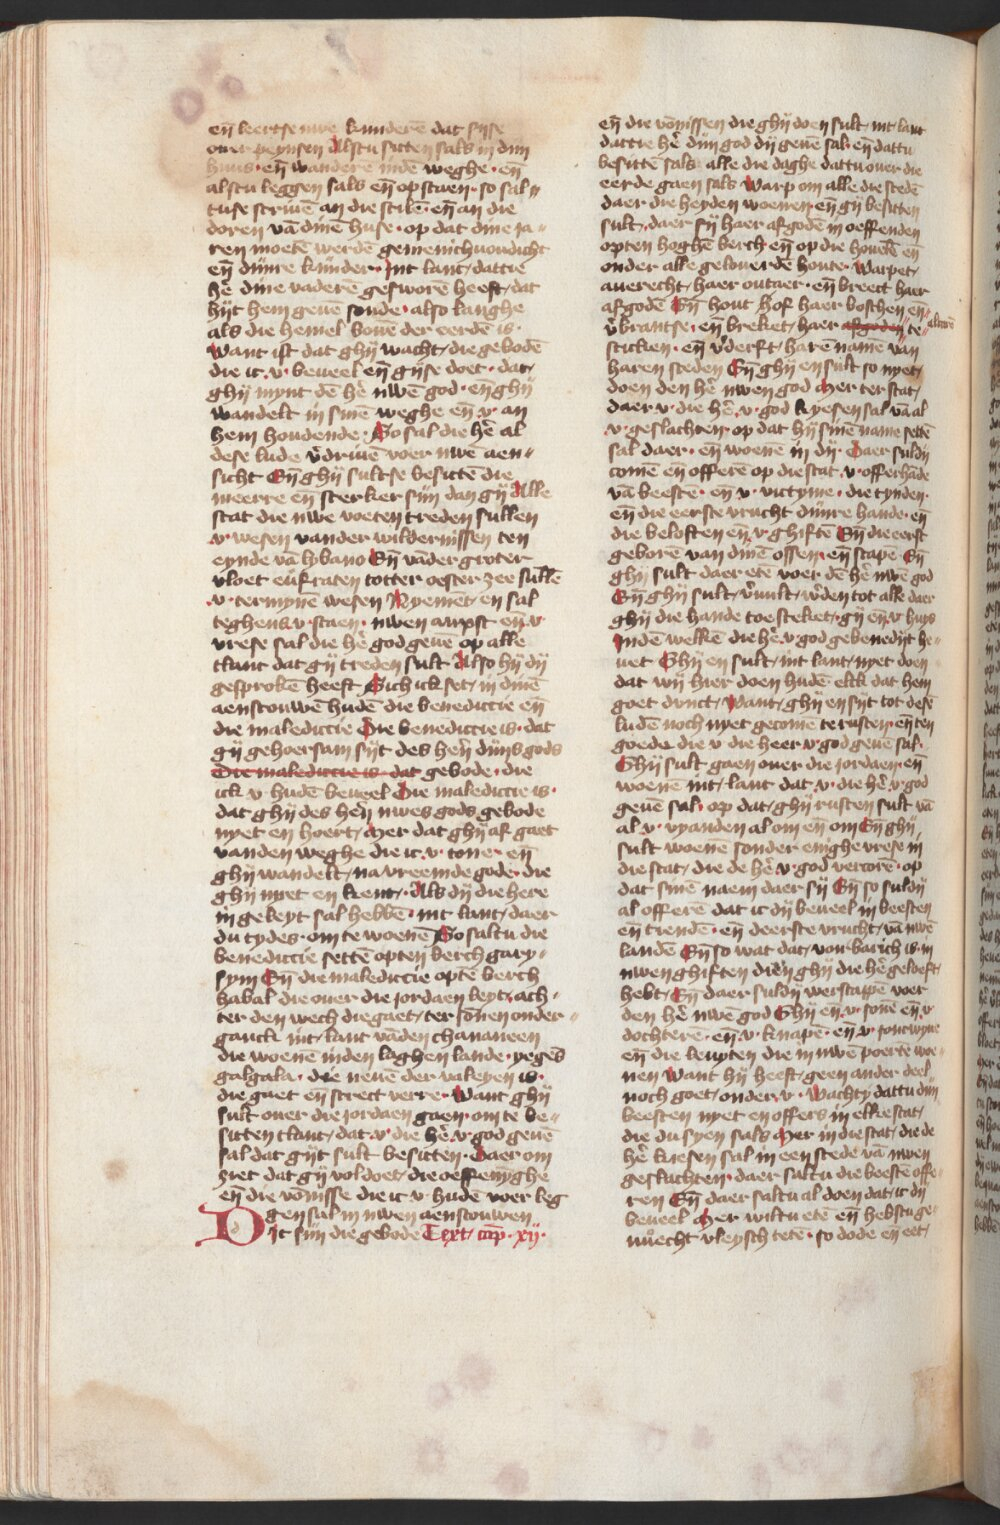 en̄ leertse uwe kinderē dat sijse
ouer peynsen Alstu sitten sals in dijn
huus · en̄ wanderē inden weghe · en̄
alstu leggen sals en̄ opstaen · so sal〃
tuse scriuē an die stilē · en̄ an die
doren vā dinē huse · op dat dine ja〃
ren moetē werdē gemenichuoudicht
en̄ dijnre kijnder · Int lant / dattie
hē dine vaderē gesworē heeft / dat
hijt hem geuē soude · also langhe
als die hemel bouē der eerdē is ·
Want ist dat ghij wacht / die gebodē
die ic · v · beueel en̄ gijse doet · dat /
ghij mynt dē hē uwē god · en̄ ghij
wandelt in sinē weghe en̄ · v · an
hem houdende · So sal die hē al
dese lude v̄driuē voer uwē aen〃
sicht En̄ ghij sultse besittē die
meerre en̄ sterker sijn dan gij Alle
stat die uwe voeten treden sullen
· v · wesen vander wildernissen ten
eynde vā lybano En̄ vāder groter
vloet eufraten totter oester zee sullē
· v · termynē wesen Nyemēt / en sal
teghens · v · staen · uwen anxst en̄ · v ·
vrese sal die hē god geuē op alle
tlant dat gij treden sult Also hij dij
gesprokē heeft Sich ick set / in dinē
aenscouwen hudē die benedictie en̄
die maledictie Die benedictie is · dat
gij gehoersam sijt des heī dijns gods
Die maledictie is dat gebode · die
ick v · hudē beueel Die maledictie is ·
dat ghij des heī uwes gods gebode
nyet en hoert / Mer dat ghij af gaet
vanden weghe die ic · v · tone · en̄
ghij wandelt / na vreemde gode · die
ghij nyet en kent / Als dij die here
in geleyt sal hebbē · int lant / daer
du tydes · om te woenē So saltu die
benedictie settē opten berch gary〃
sym En̄ die maledictie optē berch
habal die ouer die jordaen leyt / ach〃
ter den wech die gaet / ter sonen onder〃
ganck int / lant vāden chananeen
die woenē inden laghen lande · yegēs
galgala · die neuē der valeyen is ·
die gaet en̄ strect verre · Want ghij
sult ouer die jordaen gaen · om te be〃
sitten tlant / dat · v · die hē · v · god geuē
sal dat gijt sult besitten · Daer om
ziet dat gij vol doet / die oeffenijghe
en̄ die vōnisse die ic v · hudē voer leg
gen sal in uwen aenscouwen
Dit sijn die gebode Text / cap̄ · xij ·
en̄ die vōnissen die ghij doen sult · int lant
dattie hē dijn god dij geuē sal · en̄ dattu
besittē sals · alle die daghe dattu ouer die
eerde gaen sals Warp om alle die stedē
daer die heyden woenen · en̄ gij besitten
sult / daer sij haer afgodē in oeffenden
opten hoghē berch en̄ op die houelē en̄
onder alle gelouerdē houte · Warpet /
auerecht / haer outaer · en̄ breect haer
afgodē En̄ hout / hof haer boschen en̄〃
v̄brantse · en̄ breket / haer afgoden te〃 altarē
sticken · en̄ v̄derft / harē namē van
haren steden En̄ ghij en sult so nyet /
doen den hē uwen god Mer ter stat /
daer · v · die hē · v · god kyesen sal vā al
· v · geslachten · op dat hij sinē name settē
sal daer · en̄ woenē in dij · Daer suldij
comē en̄ offerē op die stat · v · offerhāde
vā beestē · en̄ · v · victyme · die tynden ·
en̄ die eerste vrucht dijnre hande · en̄
die beloften en̄ · v · ghiftē En̄ die eerst
geborē van dinē ossen · en̄ scape · En̄
ghij sult daer etē voer dē hē uwē god
En̄ ghij sult / v̄vult / w̄den tot alle daer
ghij die hande toe steket · gij en̄ · v · huys
Inde welkē die hē · v · god gebenedijt he〃
uet Ghij en sult / int lant / nyet doen
dat wij hier doen hudē elck dat hem
goet dunct / Want / ghij en sijt tot desē
ludē noch nyet gecomē te rusten · en̄ ten
goede die v die heer · v · god geuē sal ·
Ghij sult gaen ouer die jordaen · en̄
woenē int / lant dat · v · die hē · v · god
geuē sal · op dat / ghij rusten sult vā
al · v · vyanden al om en̄ om En̄ ghij
sult woenē sonder enighe vrese in
die stat / die de hē · v · god vercorē · op
dat sinē naem daer sij En̄ so suldij
al offerē dat ic dij beueel in beesten
en̄ trendē · en̄ deerste vrucht / vā uwē
landē En̄ so wat dat / vorbarich is · in
uwen ghiften diēn ghij die hē geloeft /
hebt / En̄ daer suldij werscappē voer
den hē uwē god Ghij en̄ · v · sonē en̄ · v ·
dochterē · en̄ · v · knapē · en̄ · v · joncwyue
en̄ die leuyten die in uwē poerte woe〃
nen Want hij heeft / geen ander deel
noch goet / onder · v · Wachty dattu dijn
beesten nyet en offers in elke stat /
die du syen sals Mer in die stat / die de
hē kiesen sal in een stede vā uwen
geslachten · daer saltu die beestē offe〃
ren En̄ daer saltu al doen dat / ic dij
beueel Mer wiltu etē en̄ hebstu ge〃
nuecht vleysch tetē · so dode en̄ eet /